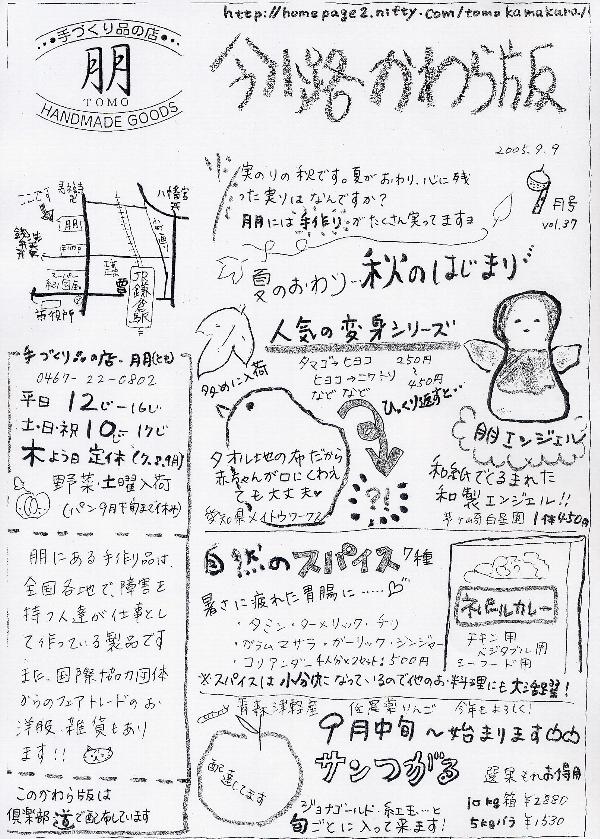 http://homepage2.nifty.com/tomokamakura/
手づくり品の店
朋
TOMO
HANDMADE GOODS
小路かわら版
2005.9.9
9月号
vol.37
実のりの秋です。夏がおわり、心に残
った実りはなんですか?
朋には手作りがたくさん実ってますヨ
夏のおわり・秋のはじまり
ここです
八幡宮
朋
市役所
JR鎌倉駅
手づくり品の店・朋(とも)
0467-22-0802
平日 12じ〜16じ
土・日・祝 10じ〜17じ
木よう日 定休(7.8.9月)
野菜・土曜入荷
(パン9月下旬まで休み)
朋にある手作り品は、
全国各地で障害を
持つ人達が仕事とし
て作っている製品です
また、国際協力団体
からのフェアトレードのお
洋服・雑貨もあり
ます!!
このかわら版は
倶楽部道で配布しています
人気の変身シリーズ
多めに入荷
タマゴ⇔ヒヨコ 250円
ヒヨコ⇔ニワトリ 〜
などなど 450円
ひっくり返すと・・
?!
タオル地の布だから
赤ちゃんが口にくわえ
ても大丈夫♥
愛知県メイトウワークス
朋エンジェル
和紙でくるまれた
和製エンジェル!!
茅ヶ崎白星園 1体450円
自然のスパイス7種
暑さに疲れた胃腸に……♡
・クミン・ターメリック・チリ
・ガラムマサラ・ガーリック・ジンジャー
・コリアンダー 4人分×2セット500円
ネパールカレー
チキン用
ベジタブル用
シーフード用
※スパイスは小分けになっているので他のお料理にも大活躍!
青森津軽産 低農薬りんご 今年もよろしく!
9月中旬〜始まります
サンつがる
配達してます
選果それぞれお得用
10kg箱 ¥2880
5kgバラ ¥1530
ジョナゴールド・紅玉…と
旬ごとに入って来ます!